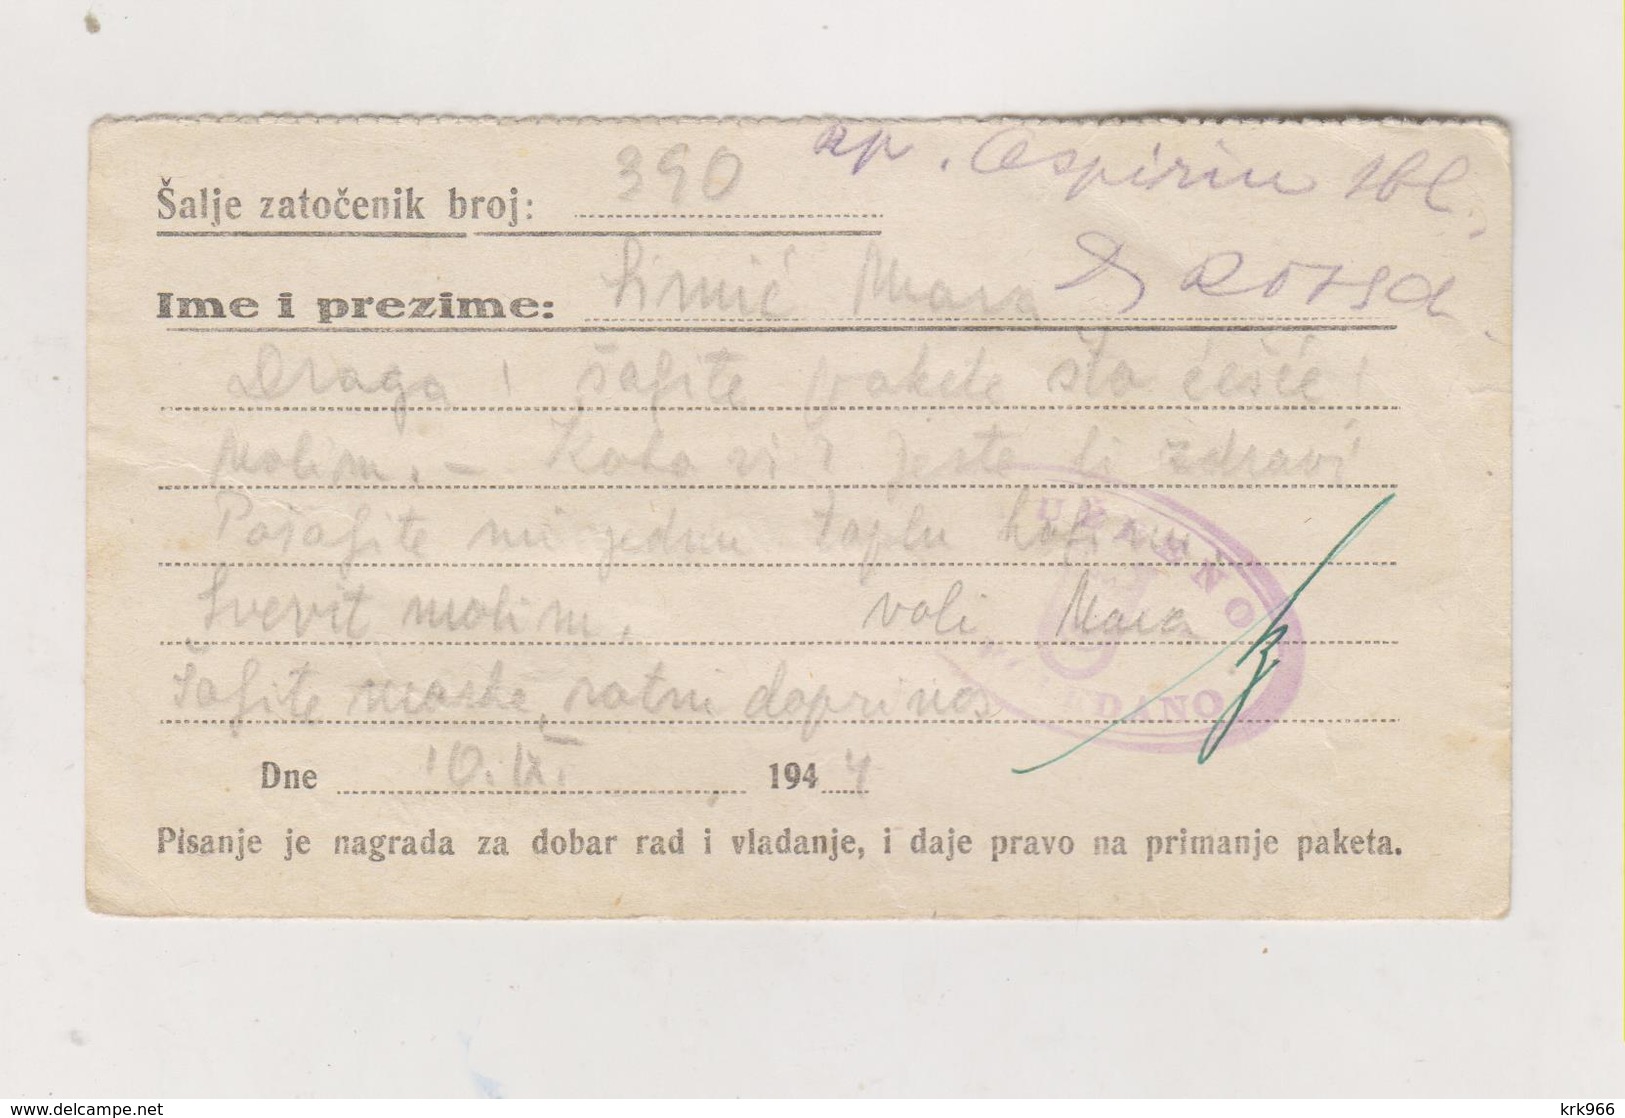 390 Rp. Aspirin tbl.
Šalje zatočenik broj:
Simić Mara
Ime i prezime:
Draga! Šaljite pakete što češće!
Molim. – Kako vi? Jeste li zdravi
Pošaljite mi jednu toplu haljinu.
Svevit molim. voli Mara
Šaljite marke, ratni doprinos
URAENO
DANO
Dne 10. IX. 1944
Pisanje je nagrada za dobar rad i vladanje, i daje pravo na primanje paketa.
www.delcampe.net
krk966